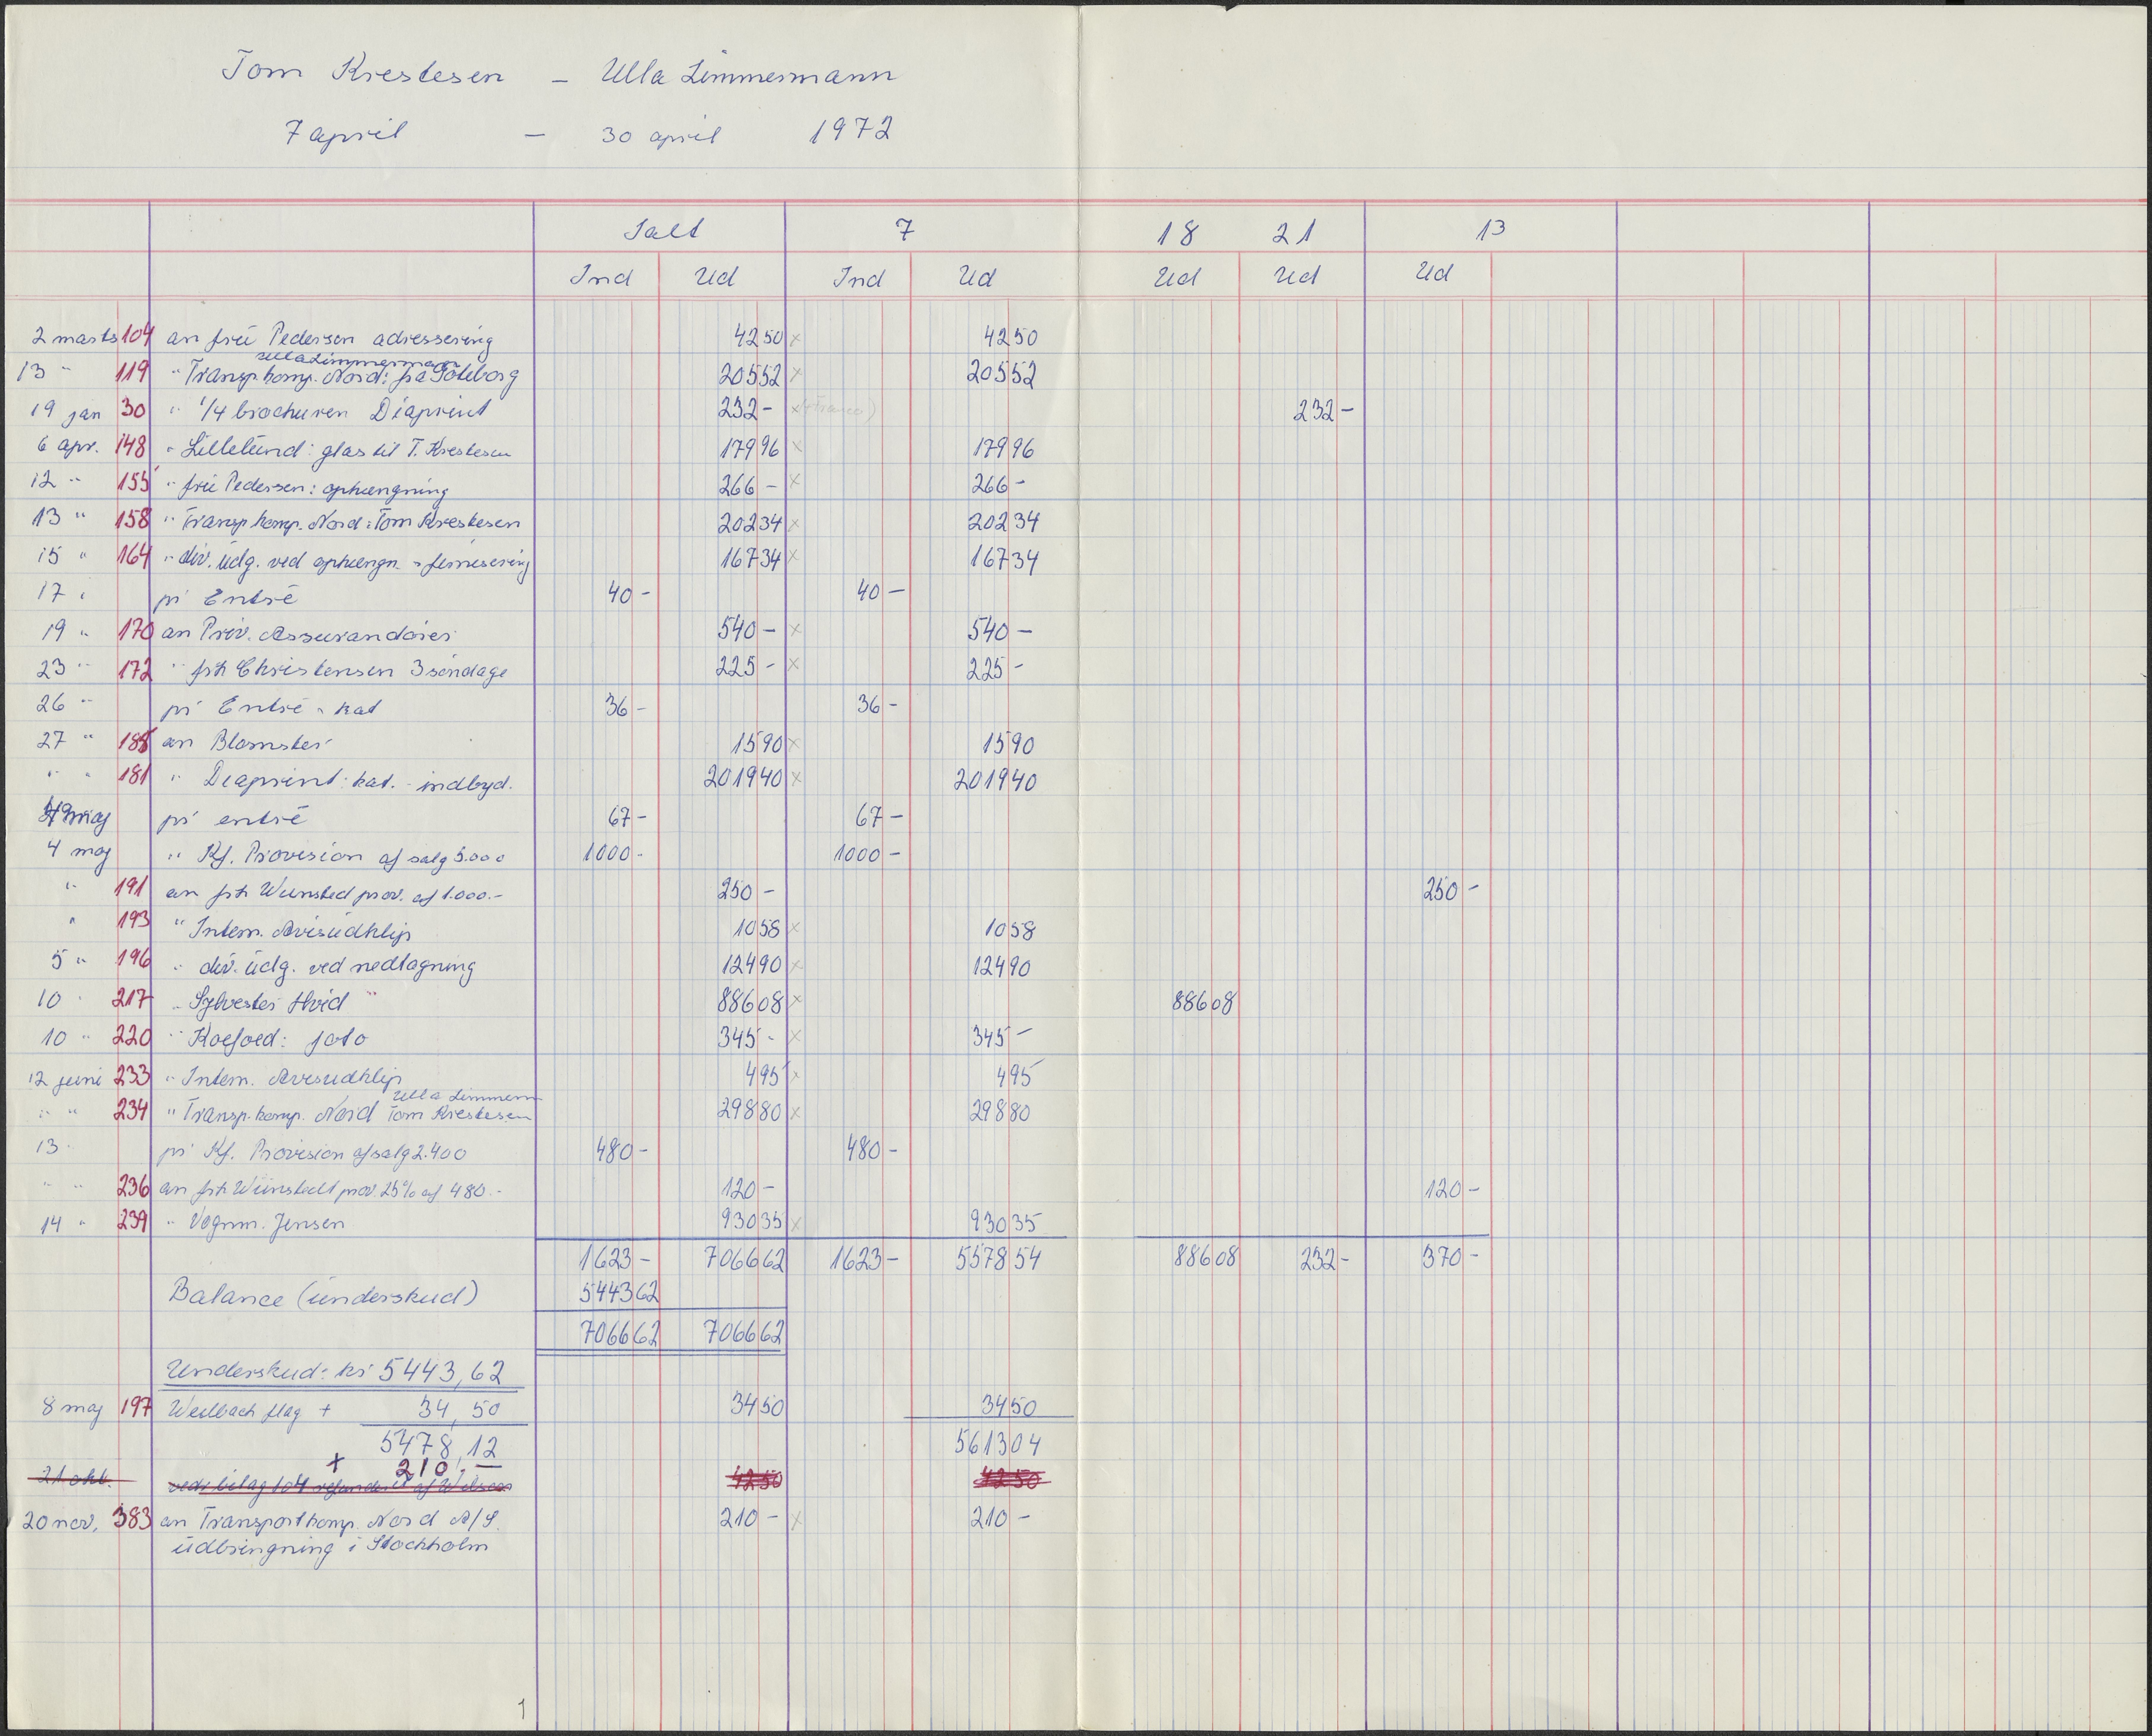 Tom Krestesen – Ulla Zimmermann
7 april – 30 april 1972
Ialt 7 18 21 13
Ind Ud Ind Ud Ud Ud Ud
2 marts 104 an frú Pedersen adressering 42 50 × 42 50
Ulla Zimmermann
13 " 119 " Transp. komp. Nord: fra Göteborg 205 52 × 205 52
19 jan 30 " 1/4 brochuren Diaprint 232 - × 232 -
6 apr. 148 " Lillelund: glas til T. Krestesen 179 96 × 179 96
12 " 155 " frú Pedersen: ophængning 266 - × 266 -
13 " 158 " Transp. komp. Nord: Tom Krestesen 202 34 × 202 34
15 " 164 " div. údg. ved ophængn. - fernisering 167 34 × 167 34
17 " pr Entré 40 - 40 -
19 " 170 an Priv. Assurandører 540 - × 540 -
23 " 172 " frk Christensen 3 søndage 225 - × 225 -
26 " pr Entré - kat 36 - 36 -
27 " 185 an Blomster 15 90 × 15 90
" " 181 " Diaprint: kat. - indbyd. 2019 40 × 2019 40
maj pr entré 67 - 67 -
4 maj " Kf. Provision af salg 5.000 1000 - 1000 -
" 191 an frk Wúnsted prov. af 1.000.- 250 - 250 -
" 193 " Intern. Avisúdklip 10 58 × 10 58
5 " 196 " div. údg. ved nedtagning 124 90 × 124 90
10 " 217 " Sylvester Hvid " 886 08 × 886 08
10 " 220 " Koefoed: foto 345 - × 345 -
12 juni 233 " Intern. Avisudklip 4 95 × 4 95
Ulla Zimmerm
" " 234 " Transp. komp. Nord Tom Krestesen 298 80 × 298 80
13 " pr Kf. Provision af salg 2.400 480 - 480 -
" " 236 an frk Wúnstedt prov. 25% af 480.- 120 - 120 -
14 " 239 " Vognm. Jensen 930 35 × 930 35
1623 - 7066 62 1623 - 5578 54 886 08 232 - 370 -
Balance (únderskud) 5443 62
7066 62 7066 62
Underskud: kr 5443,62
8 maj 197 Weilbach flag + 34,50 34 50 34 50
5478,12 5613 04
+ 210,—
21 okt. vedr bilag 104 refunderet af 42 50 42 50
20 nov. 383 an Transportkomp. Nord A/S. 210 - × 210 -
údbringning i Stockholm
1